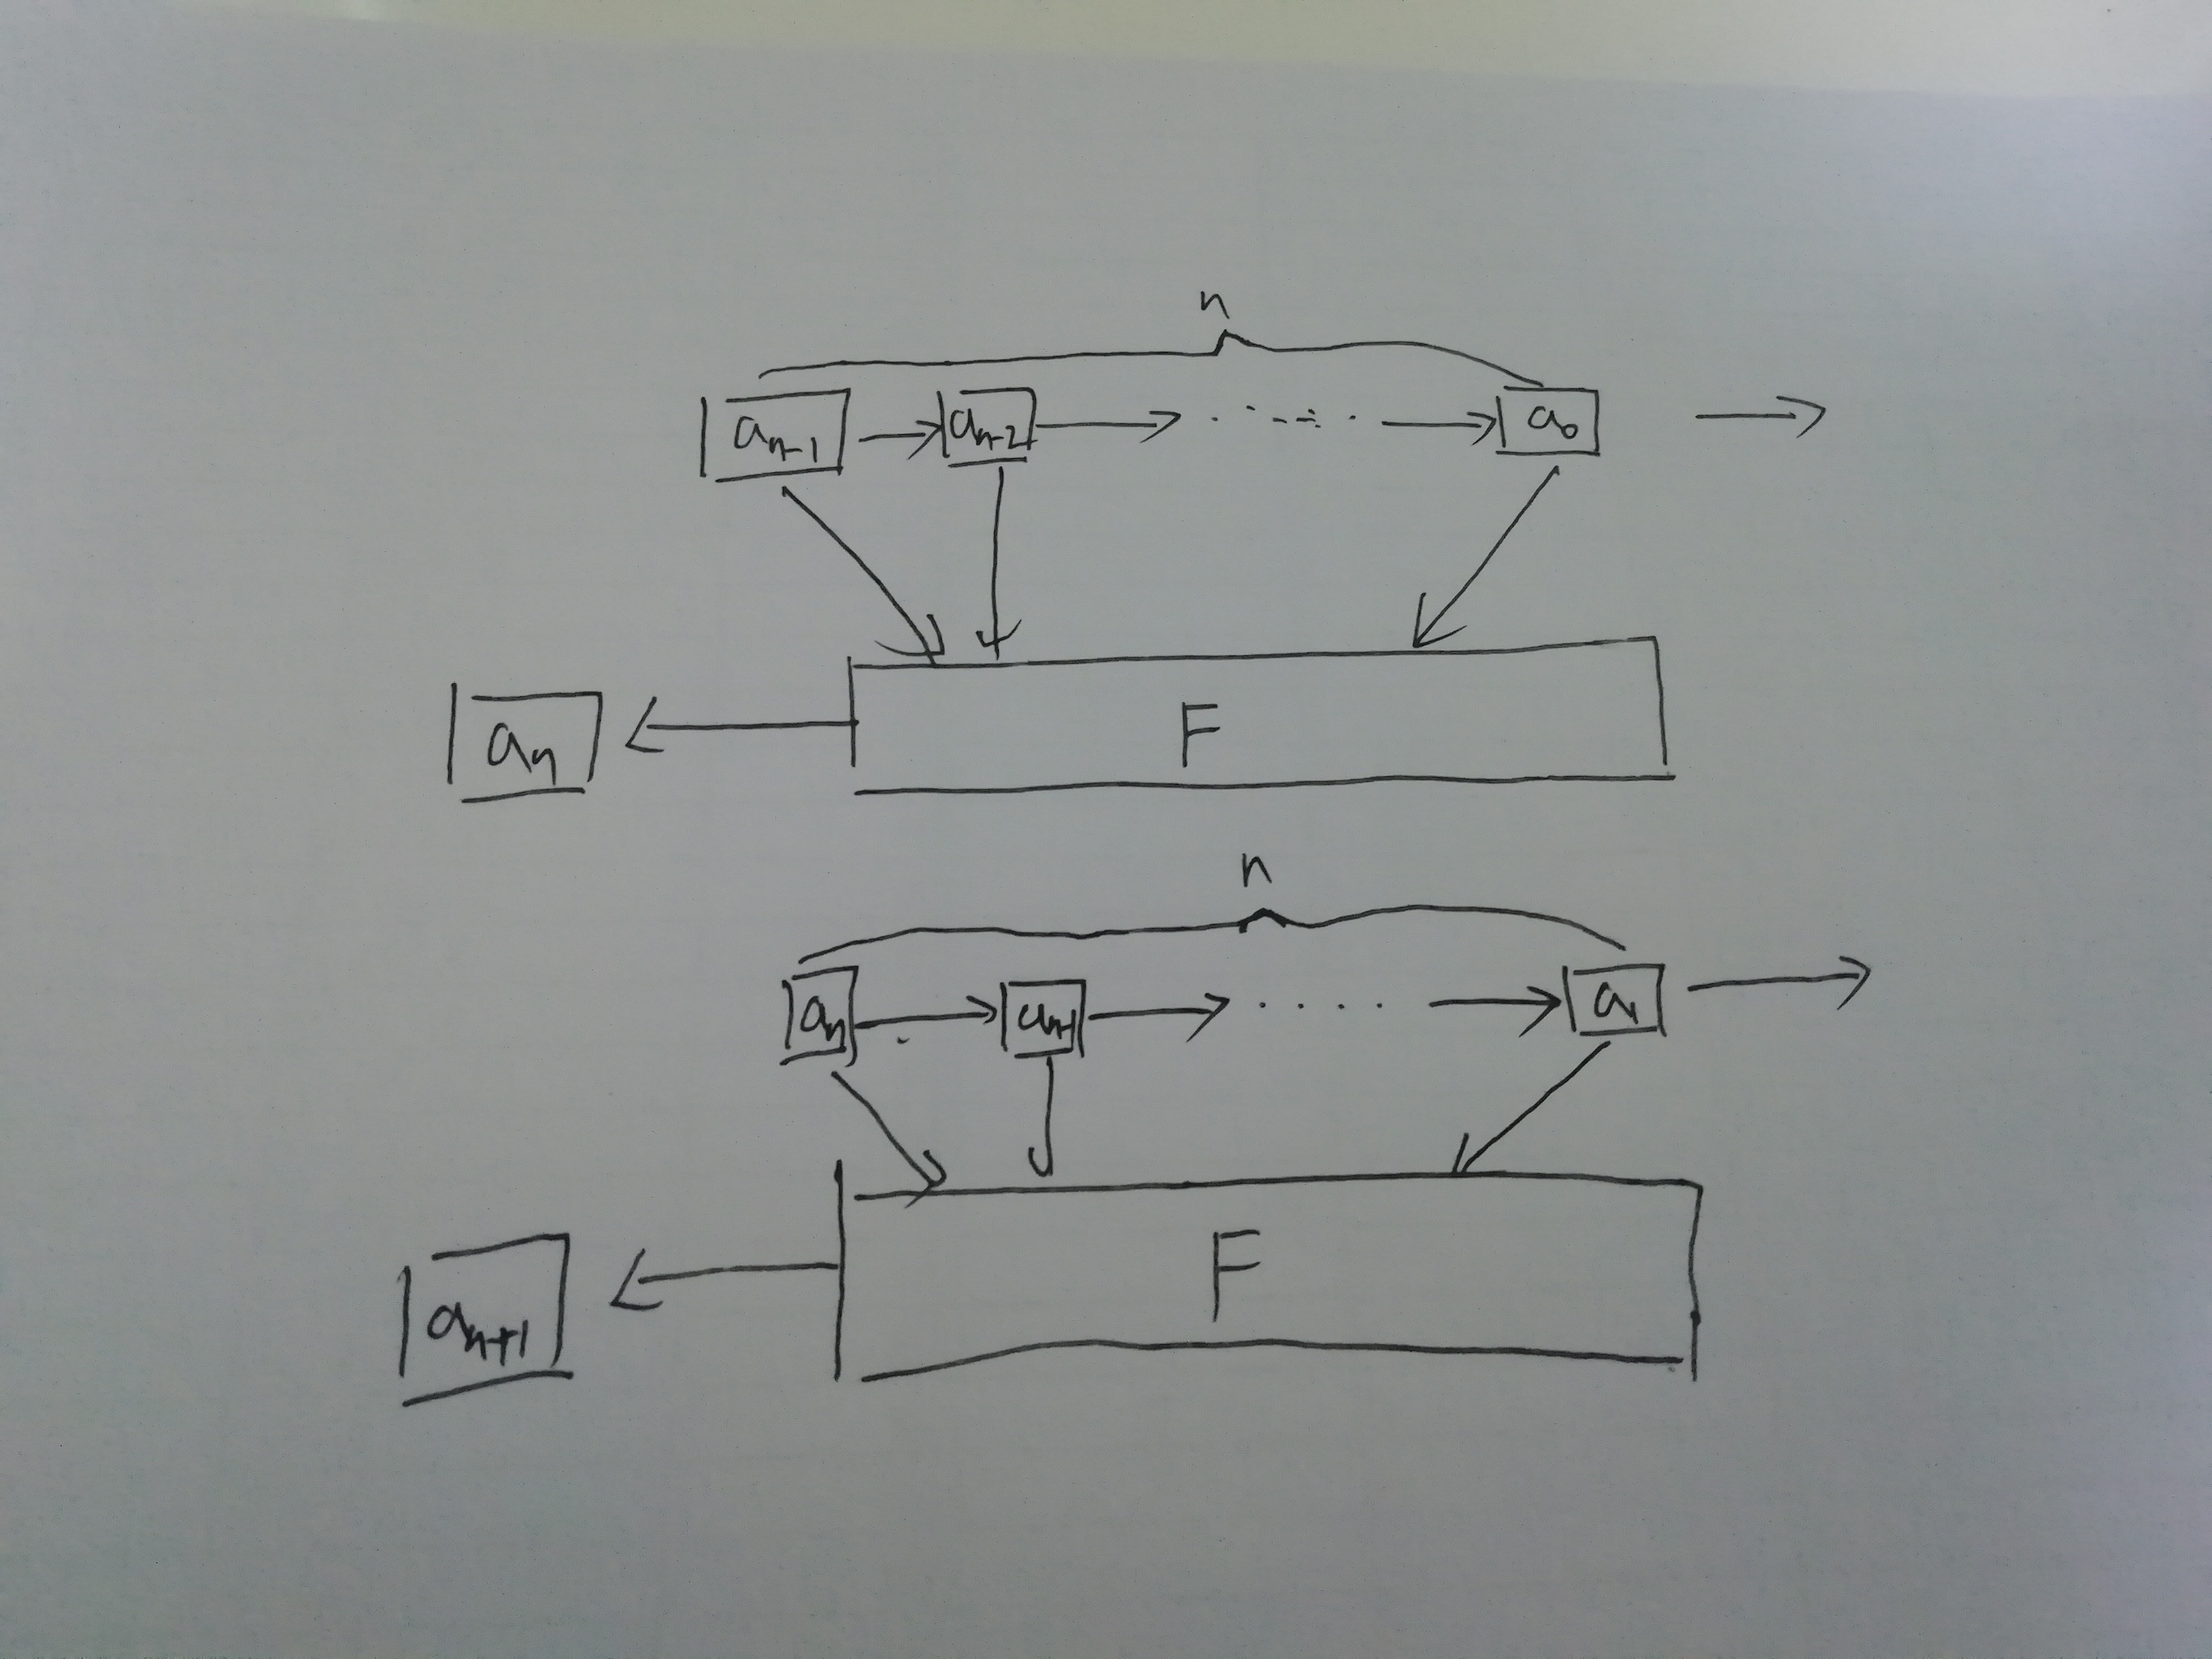 n
aₙ₋₁ aₙ₋₂ a₀
F
aₙ
n
aₙ aₙ₋₁ a₁
F
aₙ₊₁